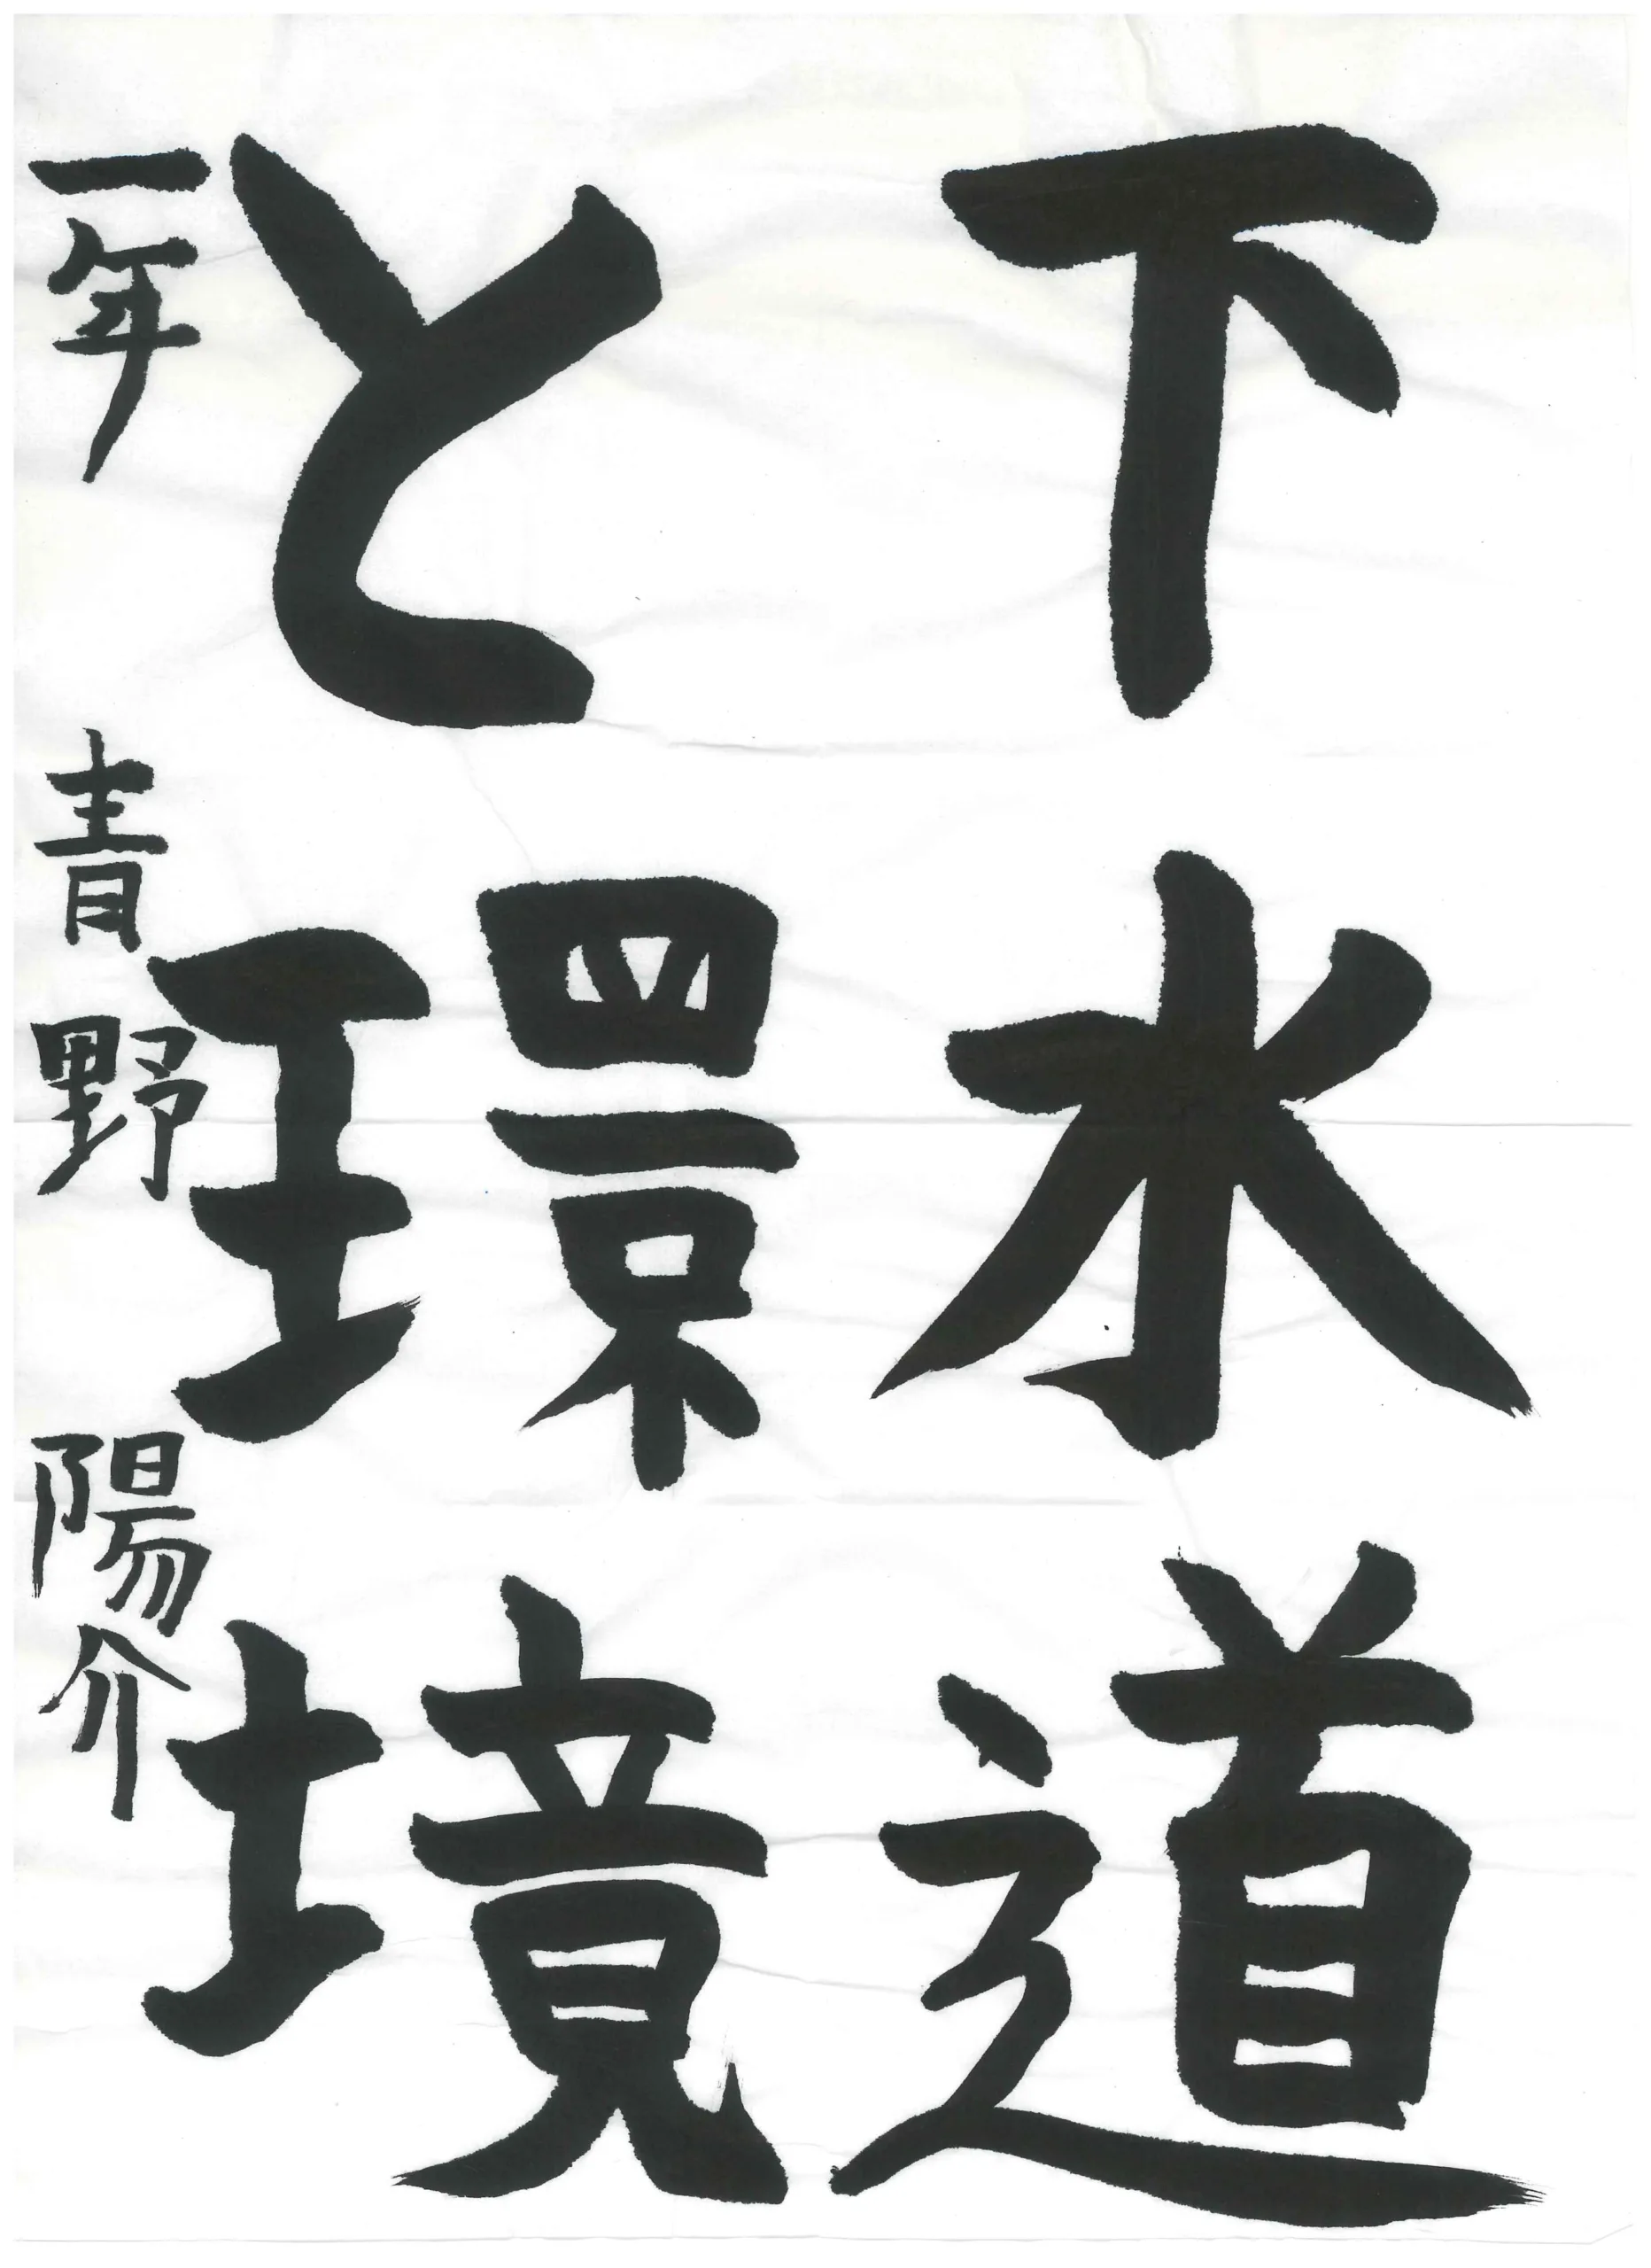 下水道
と環境
一年 青野 陽介